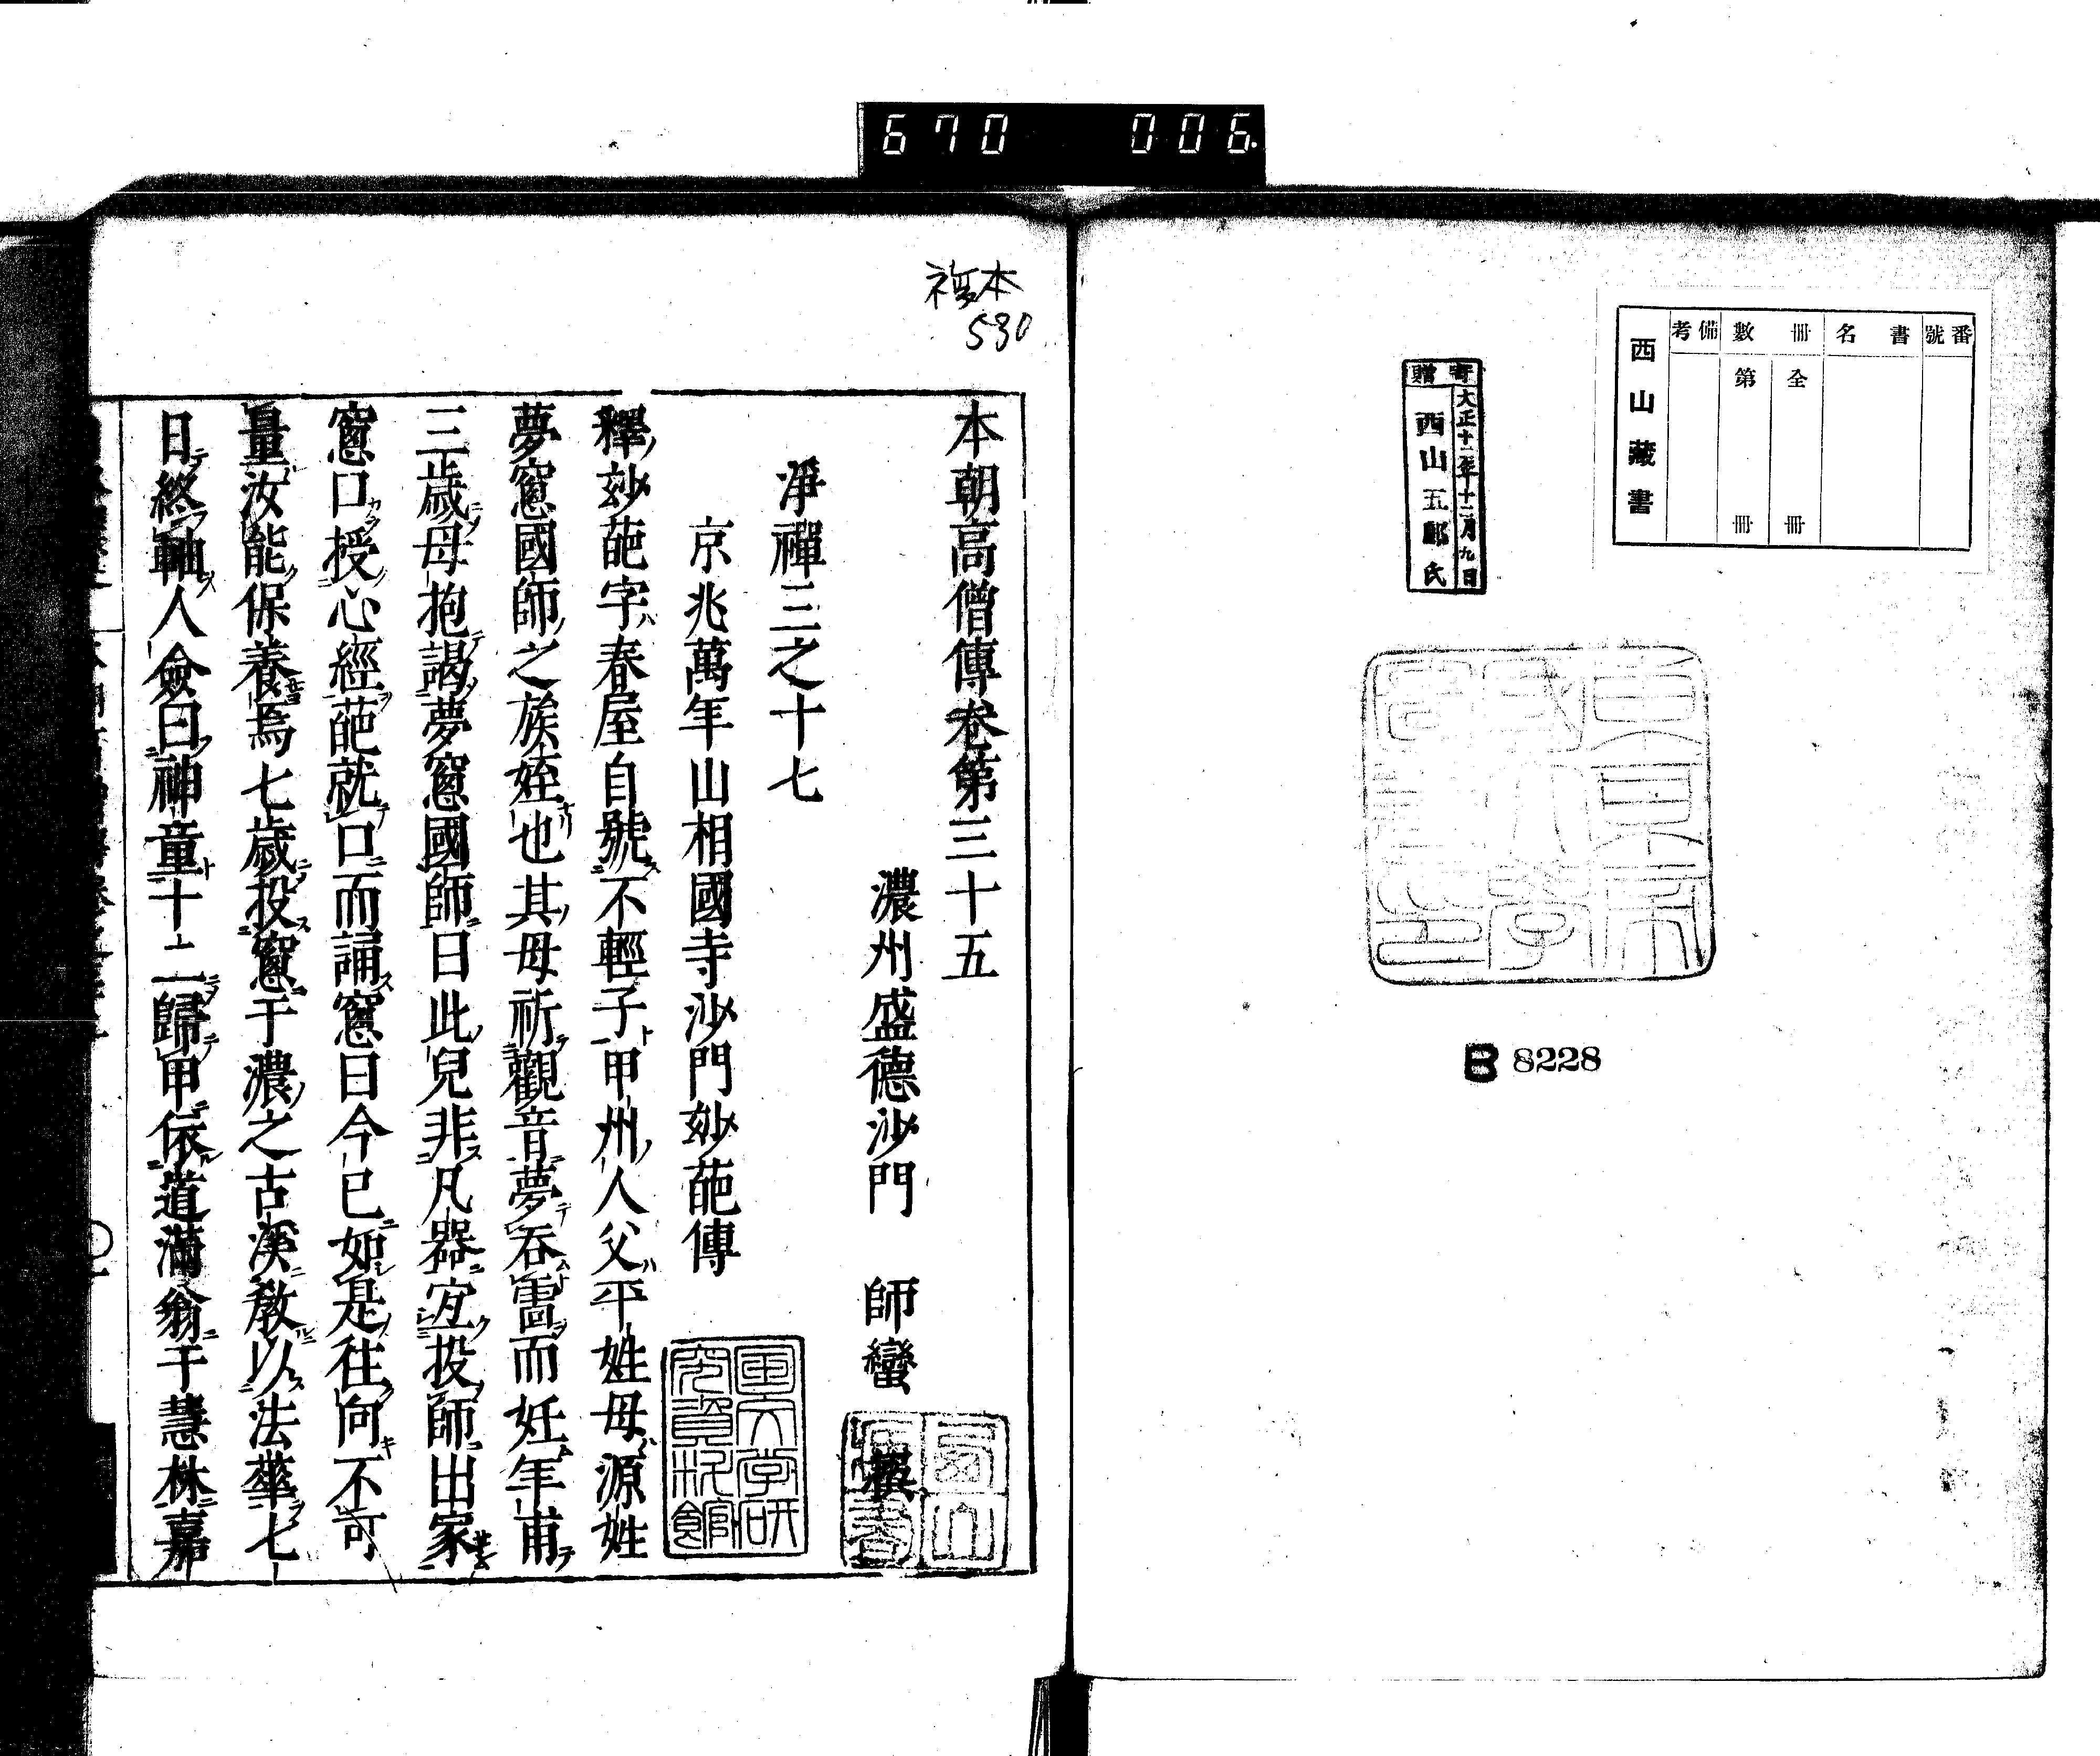 670 006.
番號
書名
冊數
備考
全 冊
第 冊
西山藏書
寄贈
大正十二年十二月九日
西山五郎氏
B 8228
複本
530
本朝高僧傳卷第三十五
濃州盛德沙門 師蠻 撰
淨禪三之十七
京兆萬年山相國寺沙門妙葩傳
釋妙葩字春屋自號不輕子甲州人父平姓母源姓
夢窻國師之族姪也其母祈觀音夢吞䨓而妊年甫
三歲母抱謁夢窻國師曰此兒非凡器宜投師出家
窻口授心經葩就口而誦窻曰今已如是往向不可
量汝能保養焉七歲投窻于濃之古溪教以法華七
日終軸人僉曰神童十二歸甲依道滿翁于慧林嘉